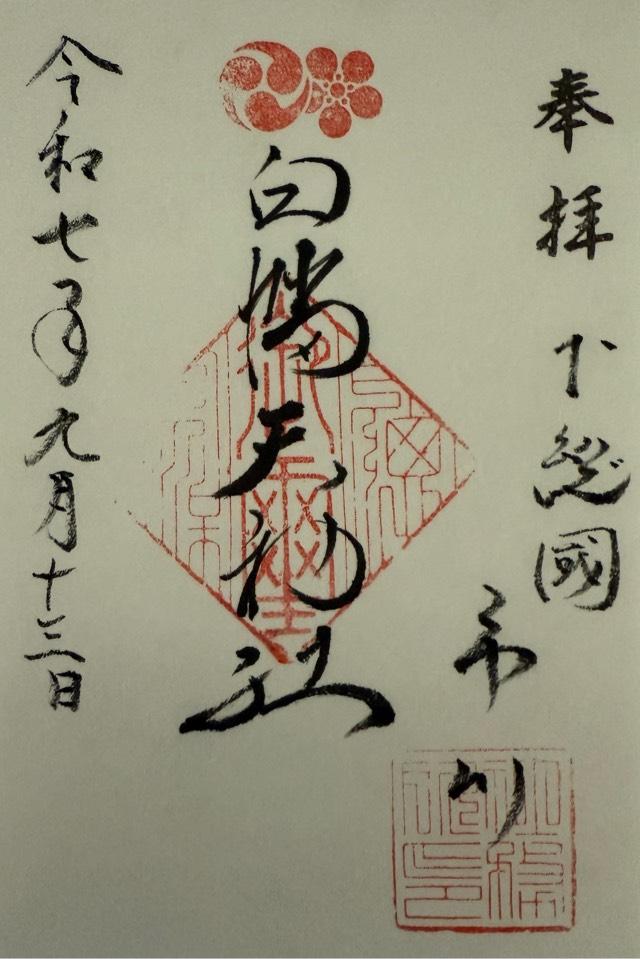 奉拝 下総國
市川
白幡天神社
令和七年九月十三日